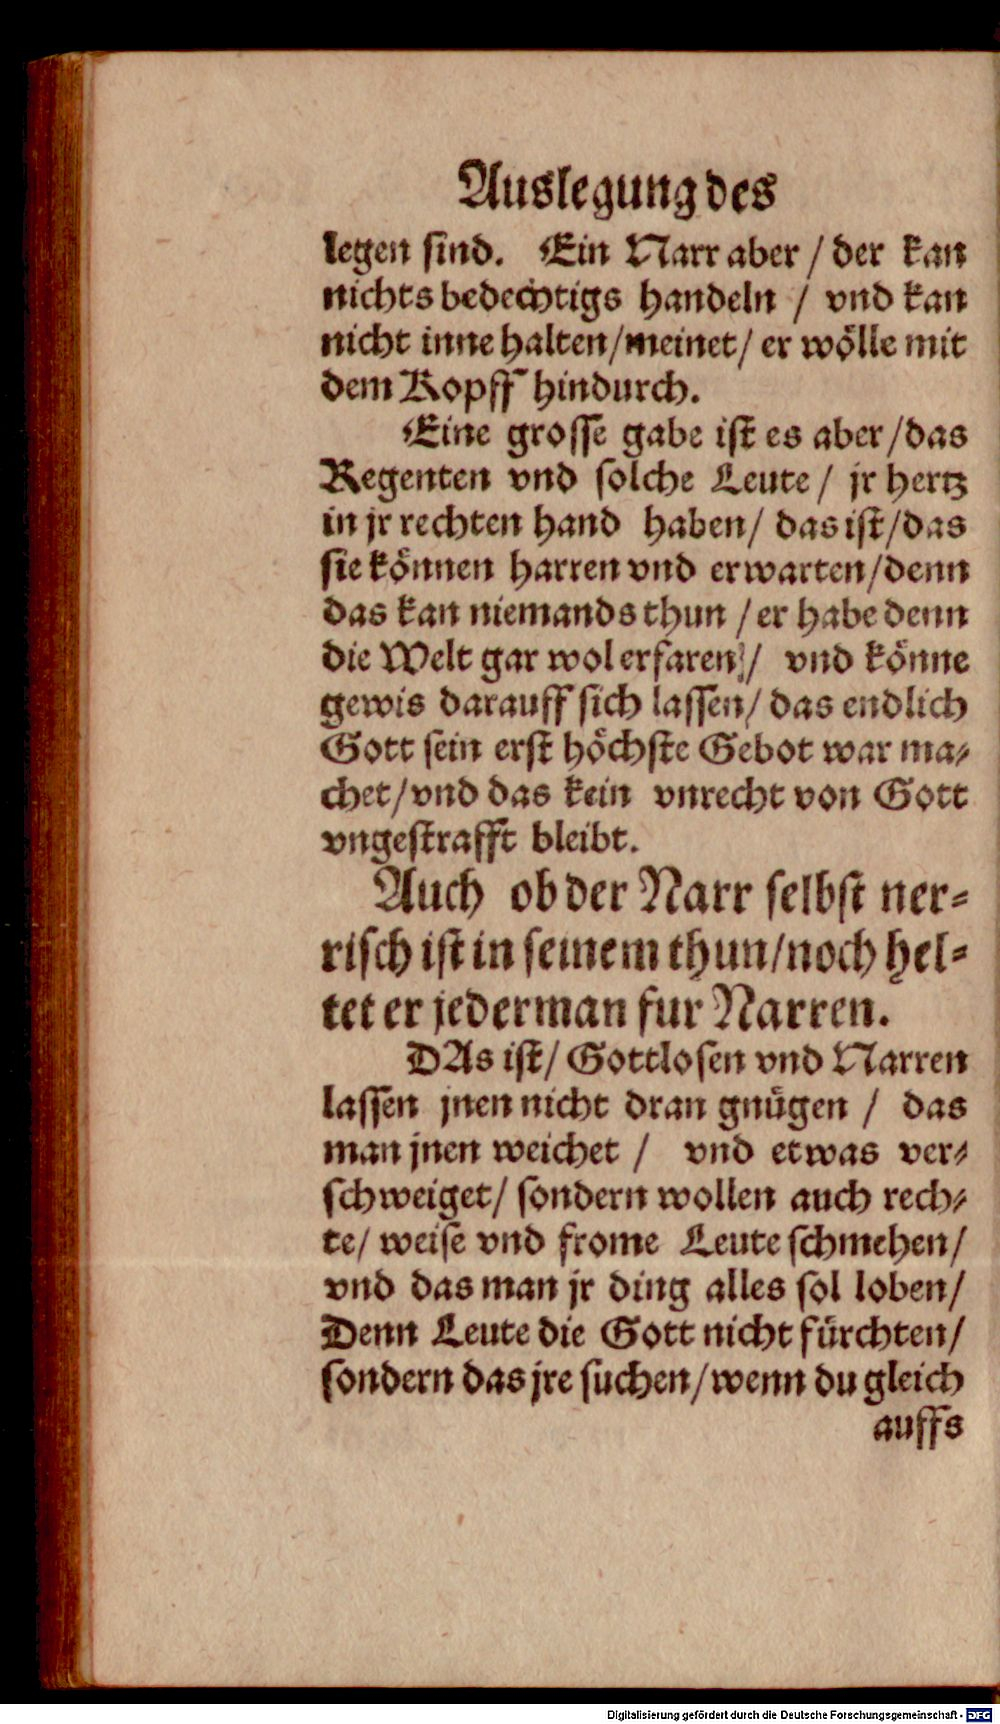 Auslegung des
legen sind. Ein Narr aber / der kan
nichts bedechtigs handeln / vnd kan
nicht inne halten/meinet/ er wölle mit
dem Kopff hindurch.
Eine grosse gabe ist es aber/das
Regenten vnd solche Leute / jr hertz
in jr rechten hand haben/ das ist/das
sie können harren vnd erwarten/denn
das kan niemands thun / er habe denn
die Welt gar wol erfaren/ vnd könne
gewis darauff sich lassen/ das endlich
Gott sein erst höchste Gebot war ma-
chet/vnd das kein vnrecht von Gott
vngestrafft bleibt.
Auch ob der Narr selbst ner-
risch ist in seinem thun/noch hel-
tet er jederman fur Narren.
DAs ist/ Gottlosen vnd Narren
lassen jnen nicht dran gnügen / das
man jnen weichet / vnd etwas ver-
schweiget/ sondern wollen auch rech-
te/ weise vnd frome Leute schmehen/
vnd das man jr ding alles sol loben/
Denn Leute die Gott nicht fürchten/
sondern das jre suchen/wenn du gleich
auffs
Digitalisierung gefördert durch die Deutsche Forschungsgemeinschaft - DFG